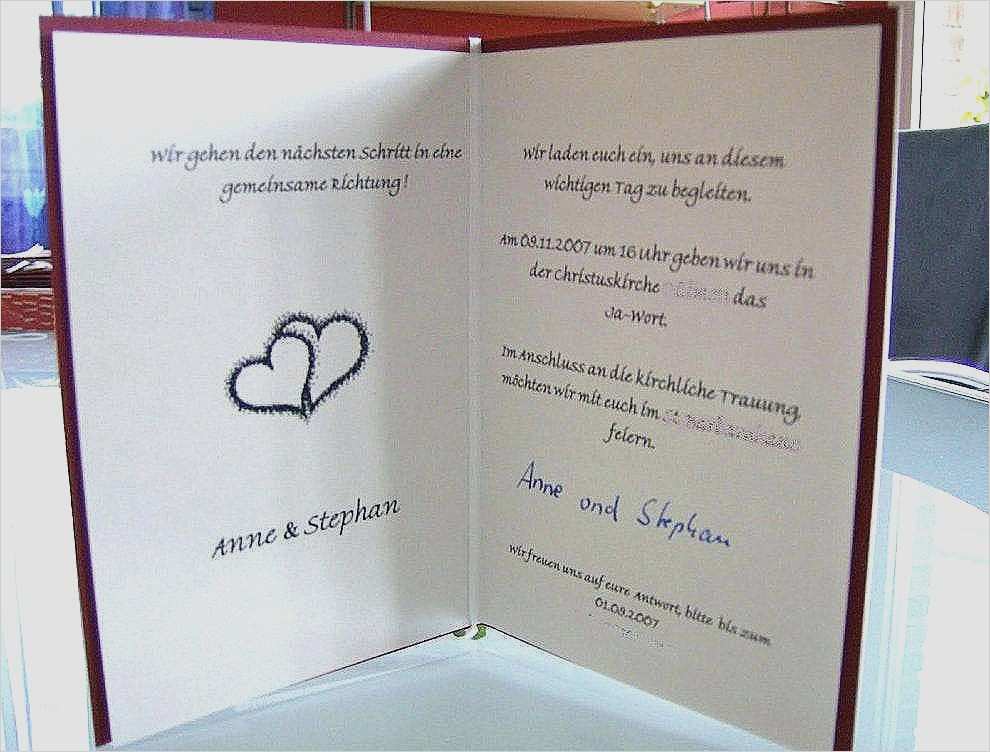 Wir gehen den nächsten Schritt in eine
gemeinsame Richtung!
Anne & Stephan
Wir laden euch ein, uns an diesem
wichtigen Tag zu begleiten.
Am 09.11.2007 um 16 Uhr geben wir uns in
der Christuskirche das
Ja-Wort.
Im Anschluss an die kirchliche Trauung,
möchten wir mit euch im
feiern.
Anne und Stephan
Wir freuen uns auf eure Antwort, bitte bis zum
01.09.2007